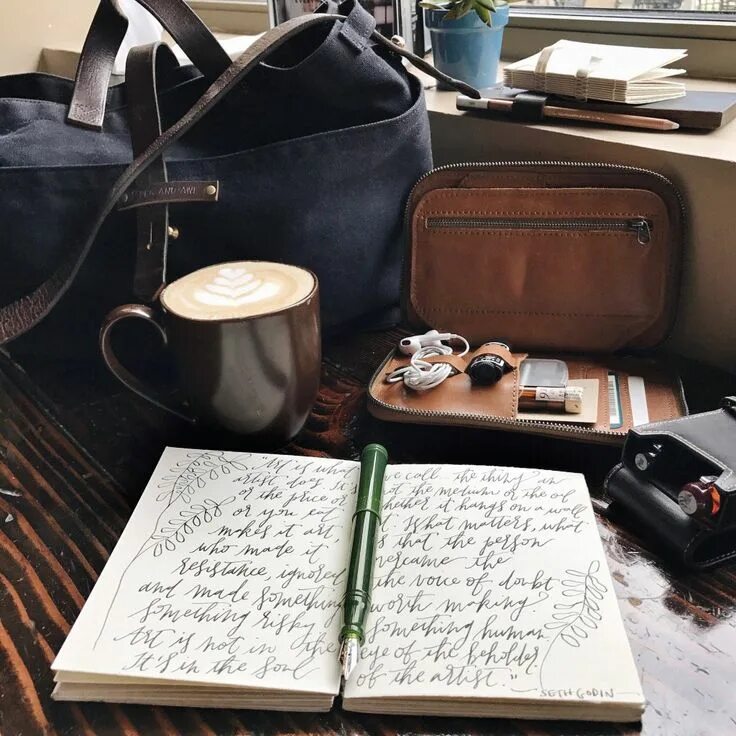 "Art is what we call the thing an
artist does. It's not the medium or the oil
or the price or whether it hangs on a wall
or you eat it. What matters, what
makes it art is that the person
who made it overcame the
resistance, ignored the voice of doubt
and made something worth making.
Something risky. Something human.
Art is not in the eye of the beholder.
It's in the soul of the artist."
SETH GODIN